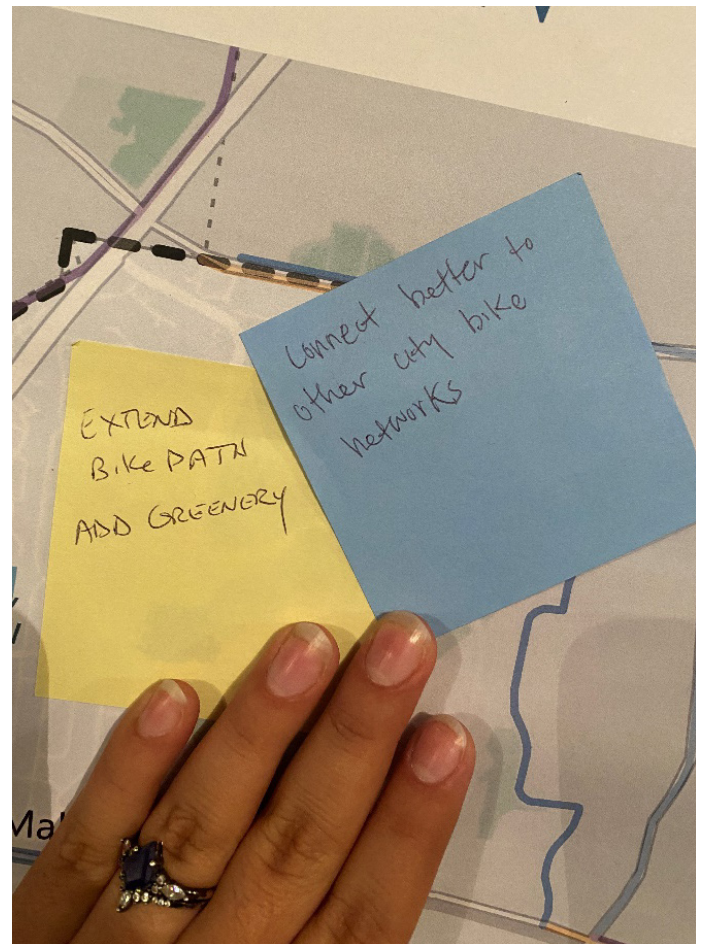 EXTEND
Bike PATH
ADD GREENERY
connect better to
other city bike
networks
Mal